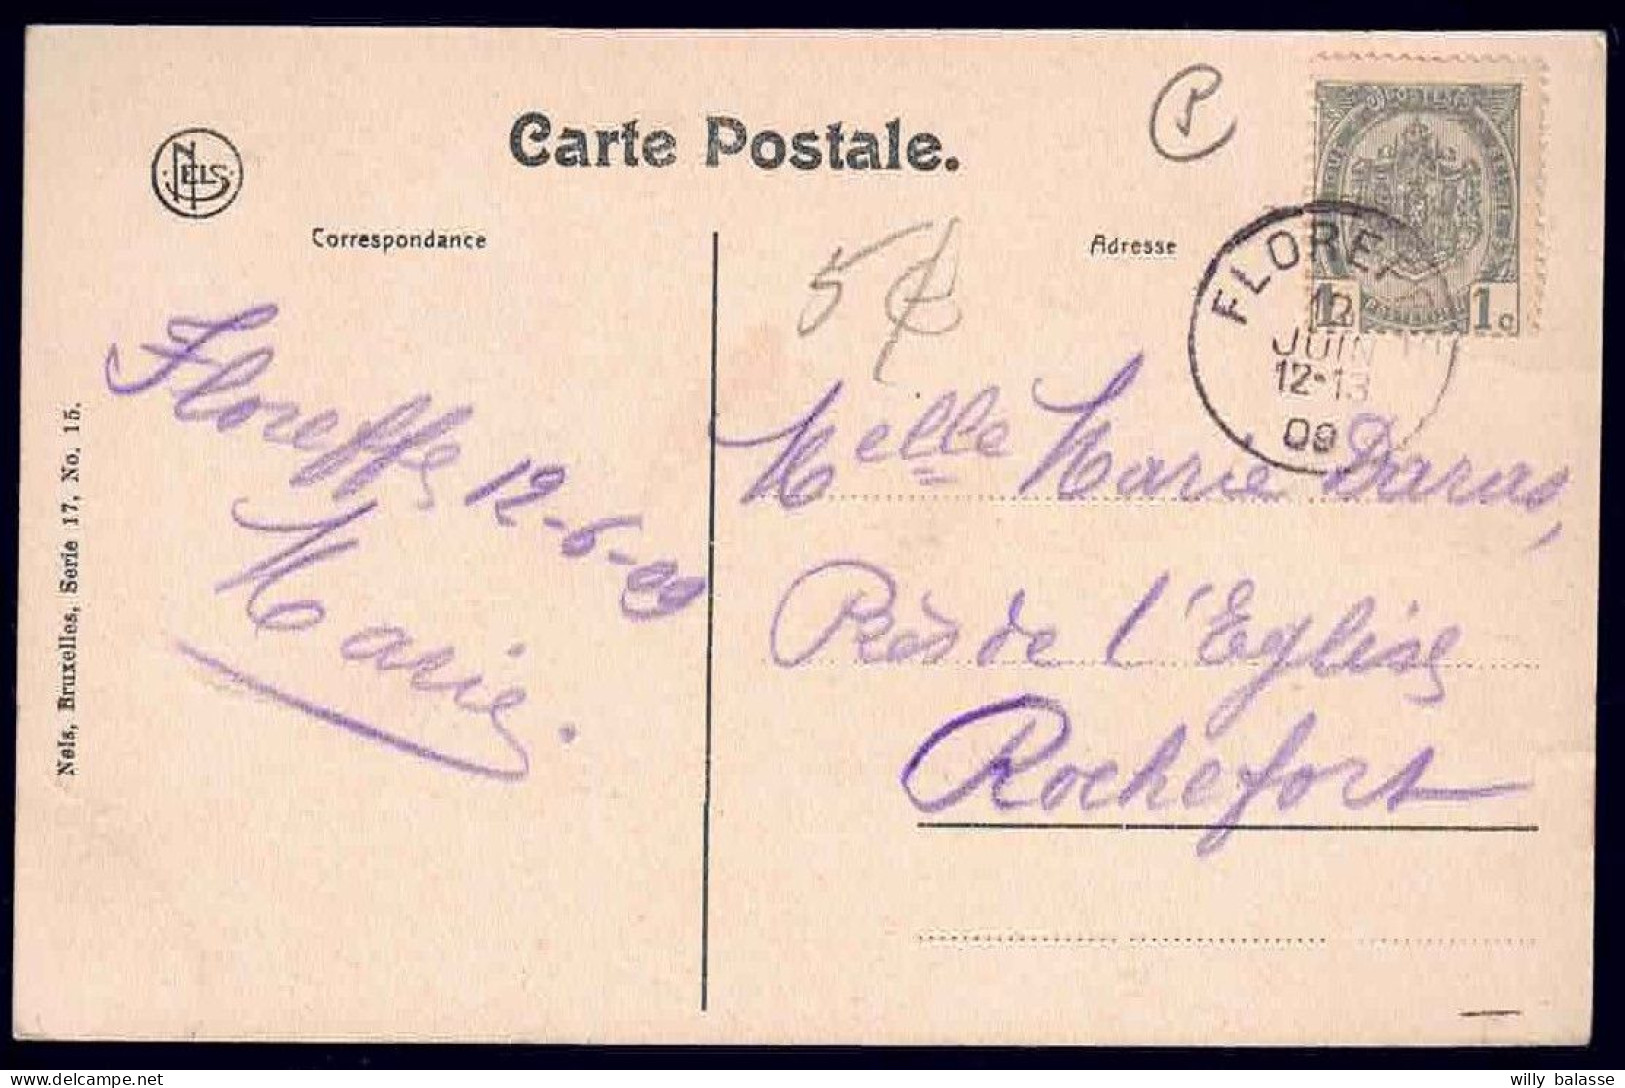 Carte Postale.
NELS
Correspondance
Adresse
5
FLOREFFE
12
JUIN
12-13
09
1 1c
Floreffe 12-6-09
Marie.
Melle Marie Daras,
Près de l'Eglise
Rochefort
Nels, Bruxelles, Serie 17, No. 15.
willy balasse